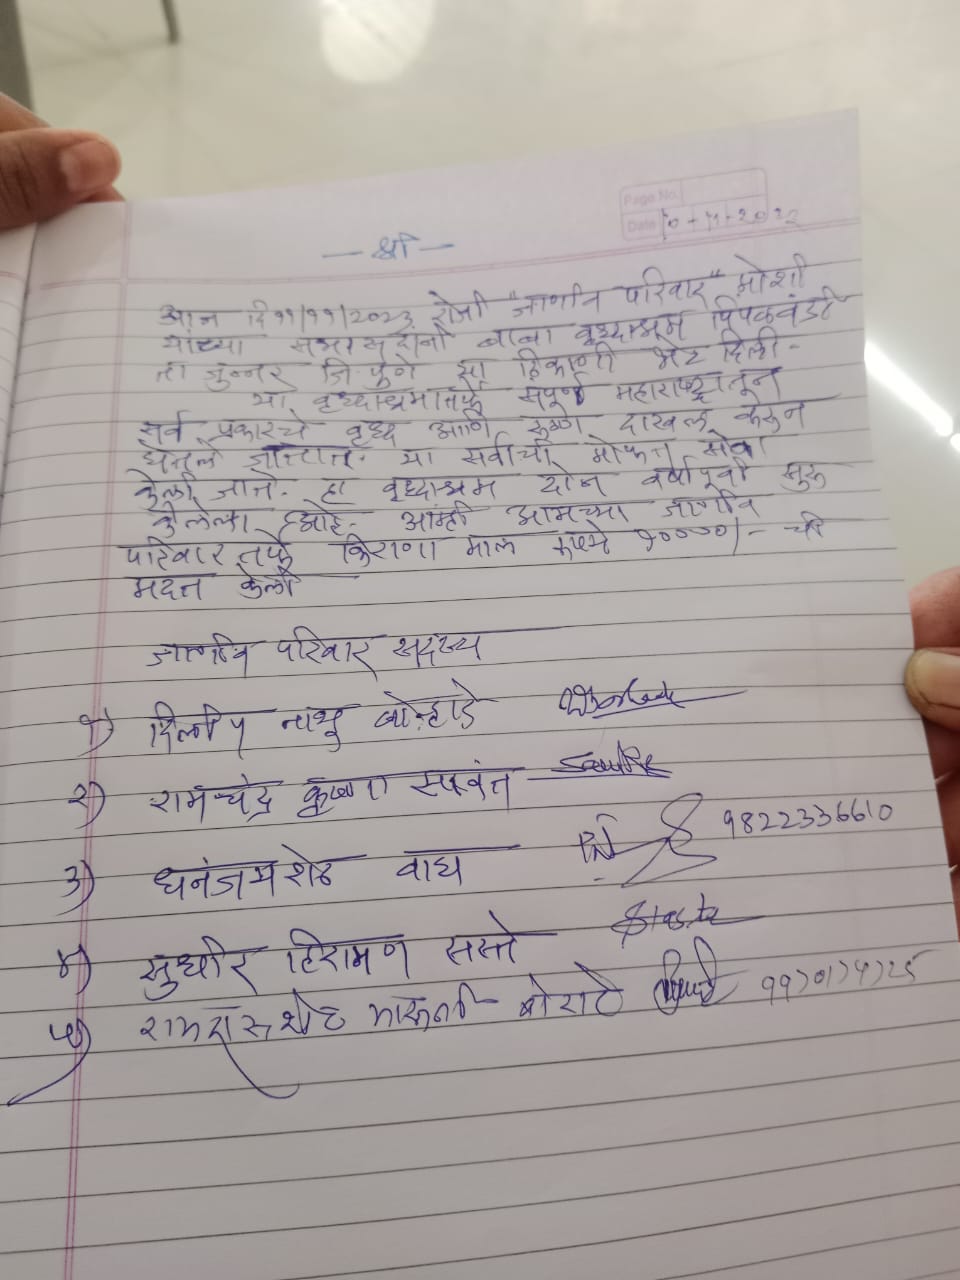 Page No.
Date
— श्री —
आज दि ११/११/२०२३ रोजी "जाणीव परिवार" मोशी
यांच्या सभासदांनी बाबा वृध्दाश्रम पिंपळवंडी
ता जुन्नर जि. पुणे या ठिकाणी भेट दिली-
या वृध्दाश्रमातर्फे संपूर्ण महाराष्ट्रातून
सर्व प्रकारचे वृध्द आणि रूग्ण दाखल करून
घेतले जातात. या सर्वांची मोफत सेवा
केली जाते. हा वृध्दाश्रम दोन वर्षापूर्वी सुरू
केलेला आहे. आम्ही आमच्या जाणीव
परिवार तर्फे किराणा माल रूपये १००००/- ची
मदत केली
जाणीव परिवार सदस्य
१) दिलीप नाथु बोऱ्हाडे
२) रामचंद्र कृष्णा सावंत
३) धनंजय शेठ वाघ 9822336610
४) सुधीर हिरामण सस्ते
५) रामदास शेठ मारूती बोराटे